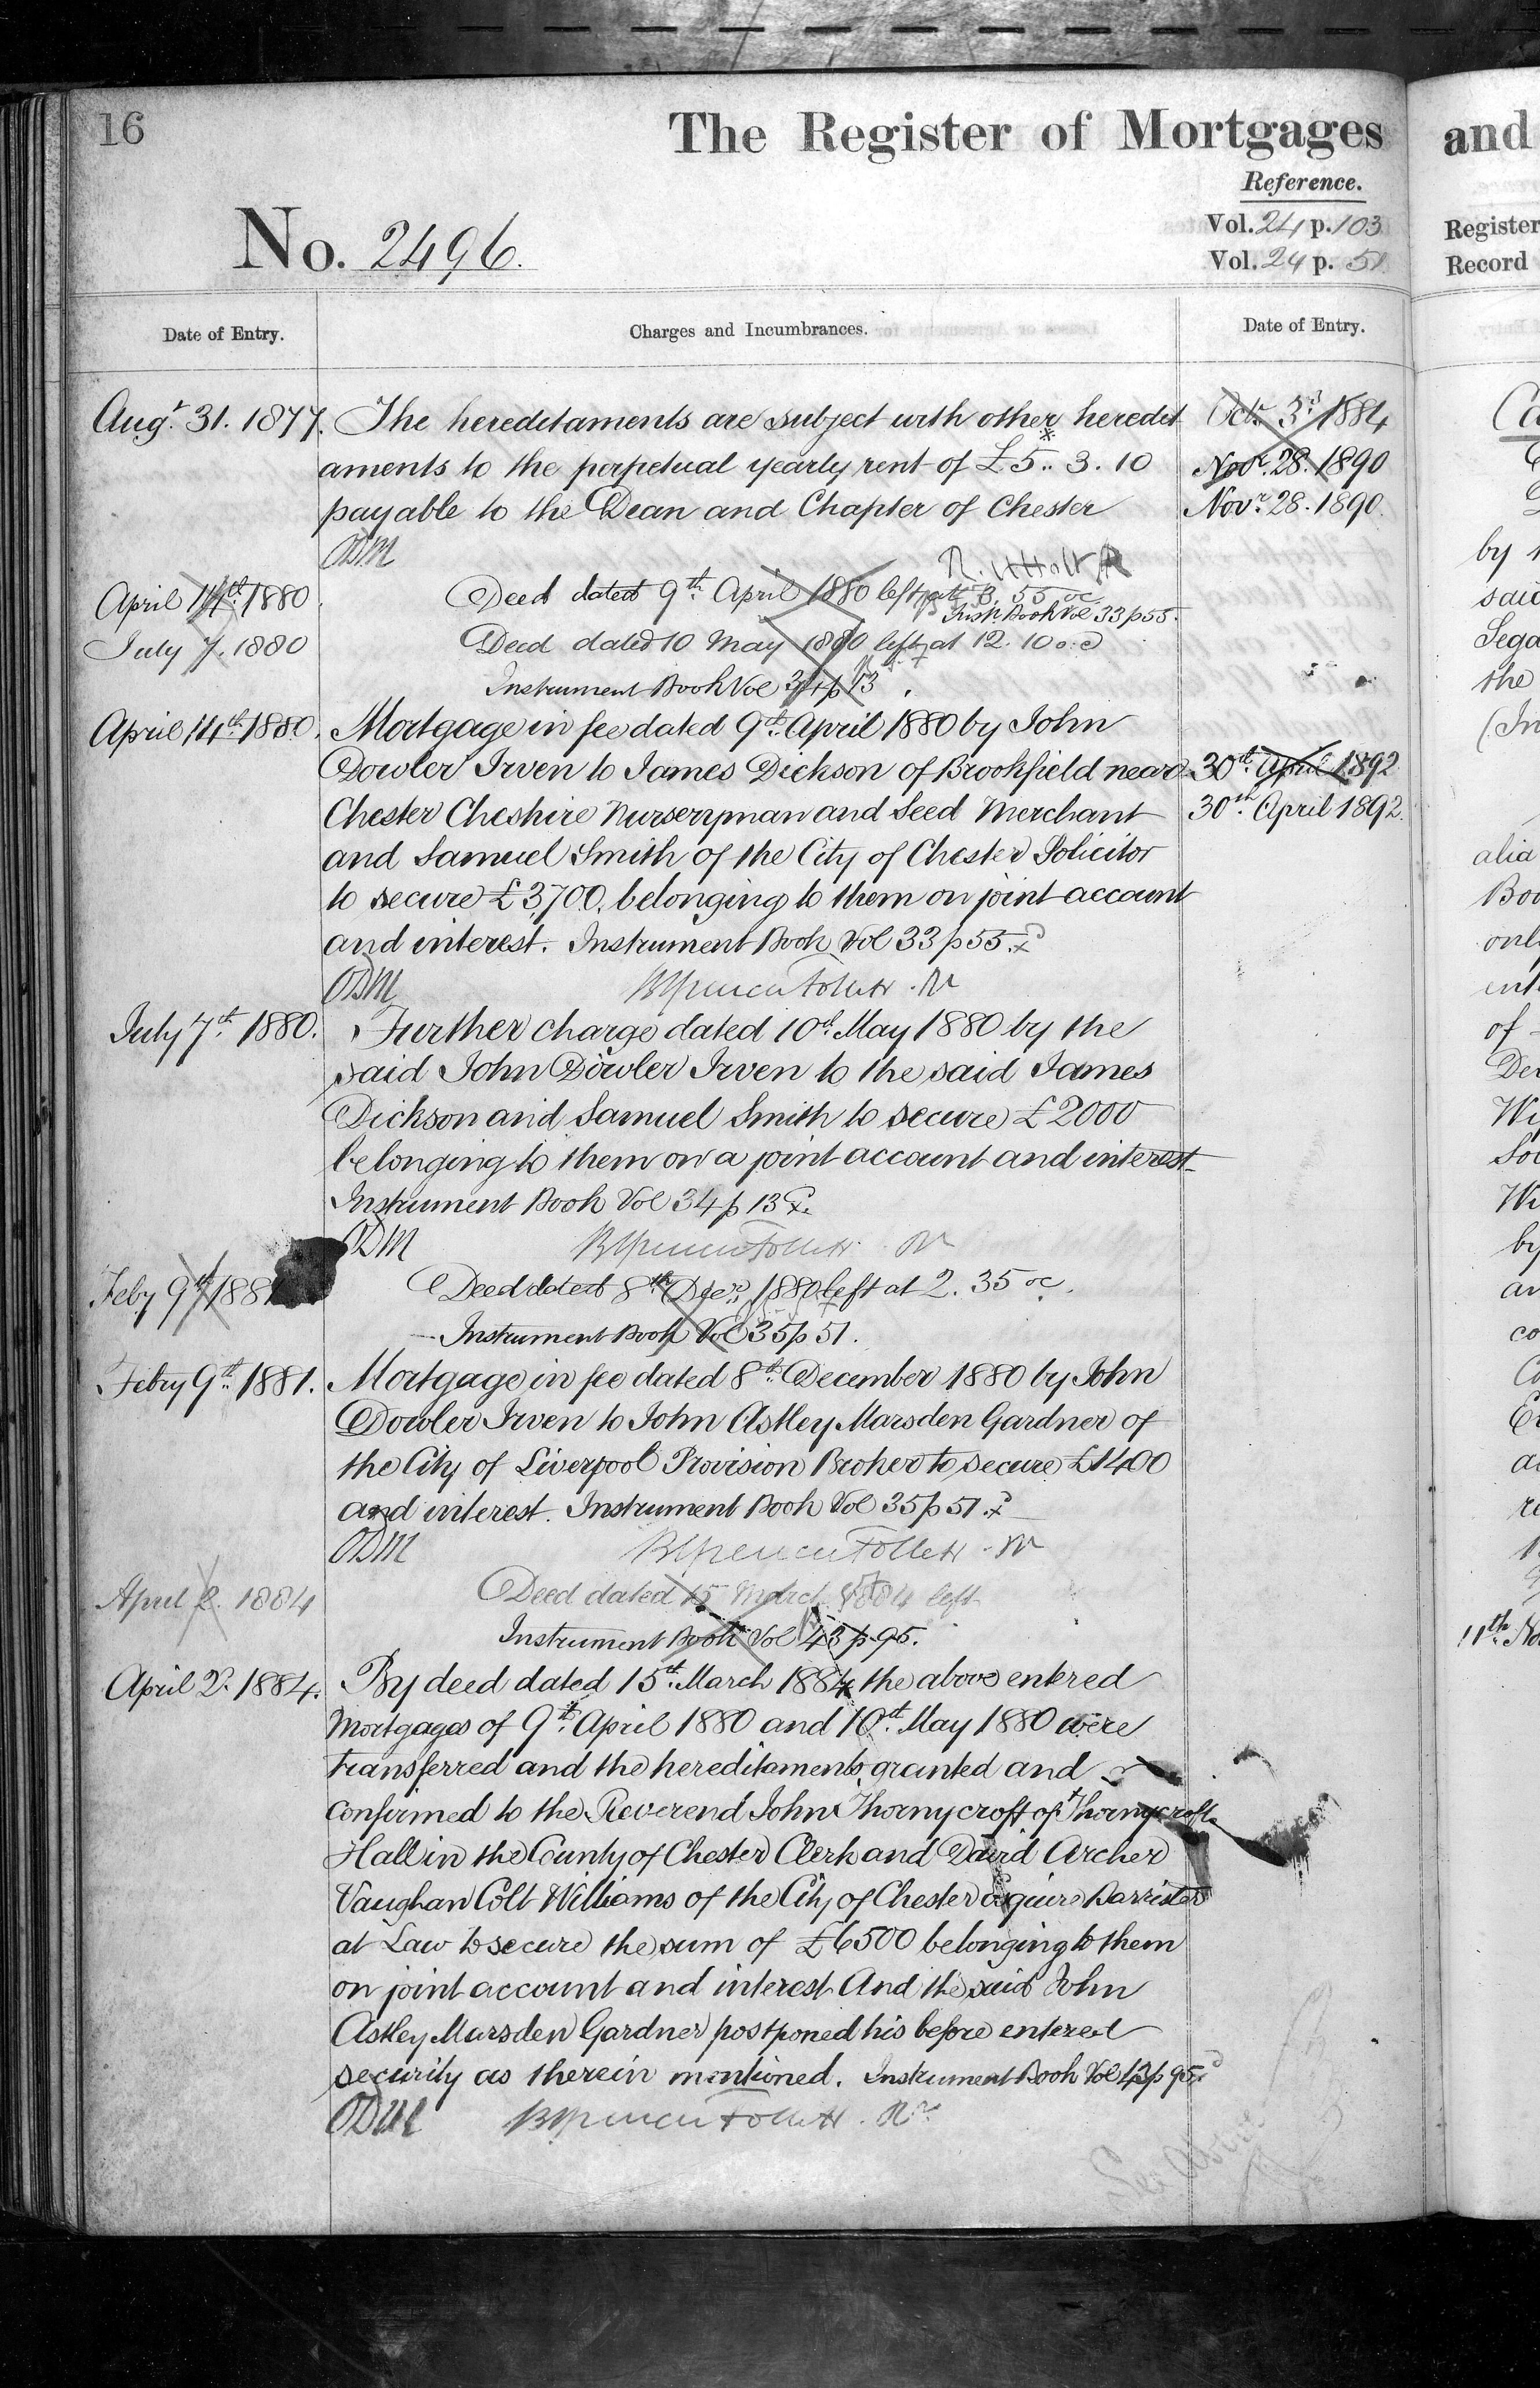 16
The Register of Mortgages
Reference.
Vol. 24 p. 103
Vol. 24 p. 51
No. 2496.
Date of Entry.
Charges and Incumbrances.
Date of Entry.
Augt. 31. 1877. The hereditaments are subject with other heredit
aments to the perpetual yearly rent of £5.. 3. 10
payable to the Dean and Chapter of Chester
ODM
April 14th. 1880. Deed dated 9th April 1880 left at 3. 55 oc
Inst. Book Vol 33 p 55.
July 7. 1880 Deed dated 10 May 1880 left at 12. 10 o.c
Instrument Book Vol 34 p 13
April 14th. 1880. Mortgage in fee dated 9th. April 1880 by John
Dowler Irven to James Dickson of Brookfield near
Chester Cheshire Nurseryman and Seed Merchant
and Samuel Smith of the City of Chester Solicitor
to secure £3,700, belonging to them on joint account
and interest. Instrument Book Vol 33 p 55.
ODM
July 7th. 1880. Further charge dated 10th. May 1880 by the
said John Dowler Irven to the said James
Dickson and Samuel Smith to secure £2000
belonging to them on a joint account and interest
Instrument Book Vol 34 p 13
ODM
Feby 9th 1881 Deed dated 8th Decr. 1880 left at 2. 35 oc.
Instrument Book Vol 35 p 51.
Febry 9th. 1881. Mortgage in fee dated 8th. December 1880 by John
Dowler Irven to John Astley Marsden Gardner of
the City of Liverpool Provision Broker to secure £1400
and interest. Instrument Book Vol 35 p 51.
ODM
April 2. 1884 Deed dated 15 March 1884 left
Instrument Book Vol 43 p 95.
April 2. 1884. By deed dated 15th. March 1884 the above entered
Mortgages of 9th. April 1880 and 10th. May 1880 were
transferred and the hereditaments granted and
confirmed to the Reverend John Thornycroft of Thornycroft
Hall in the County of Chester Clerk and David Archer
Vaughan Colt Williams of the City of Chester esquire Barrister
at Law to secure the sum of £6500 belonging to them
on joint account and interest And the said John
Astley Marsden Gardner postponed his before entered
security as therein mentioned. Instrument Book Vol 43 p 95.
ODM
Octr. 3rd 1884
Novr. 28. 1890
Novr. 28. 1890.
30th. April 1892
30th. April 1892.
See above
and
Register
Record
by
said
the
(In
alia
only
of
by
11th. No